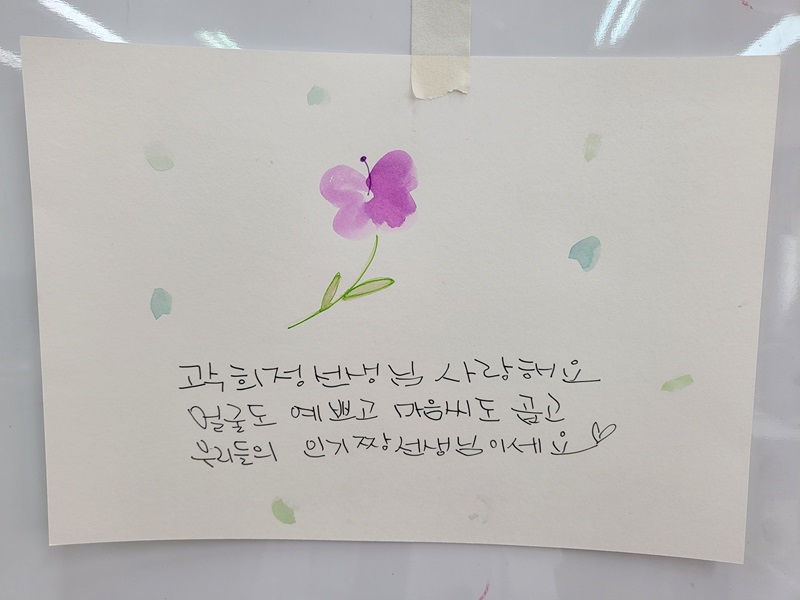 곽희정선생님 사랑해요
얼굴도 예쁘고 마음씨도 곱고
우리들의 인기짱선생님이세요